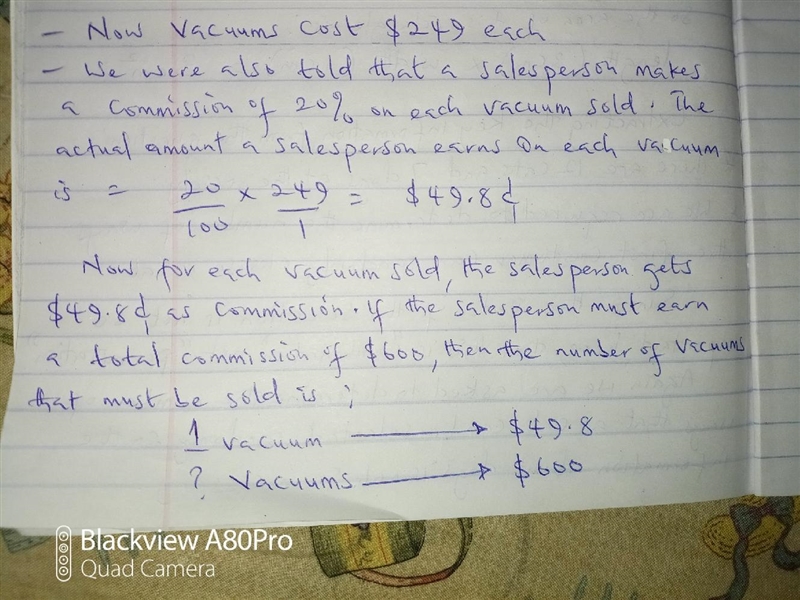 - Now Vacuums Cost $249 each
- We were also told that a salesperson makes
a Commission of 20% on each vacuum sold. The
actual amount a salesperson earns on each vacuum
is = 20/100 × 249/1 = $49.8¢
Now for each vacuum sold, the salesperson gets
$49.8¢ as commission. If the salesperson must earn
a total commission of $600, then the number of Vacuums
that must be sold is ;
1 vacuum → $49.8
? Vacuums → $600
Blackview A80Pro
Quad Camera